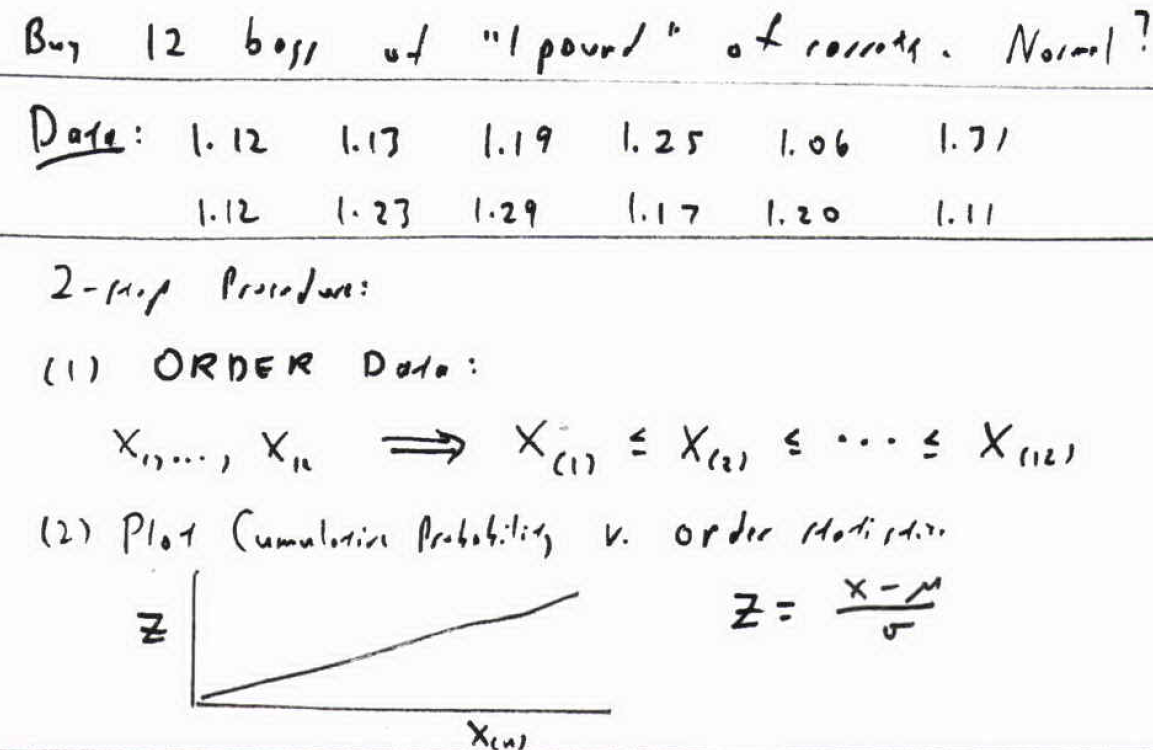 Buy 12 bags of "1 pound" of carrots. Normal?
Data: 1.12 1.13 1.19 1.25 1.06 1.31
1.12 1.23 1.29 1.17 1.20 1.11
2-step Procedure:
(1) ORDER Data:
X₁,..., X₁₂ ⟹ X₍₁₎ ≤ X₍₂₎ ≤ ··· ≤ X₍₁₂₎
(2) Plot Cumulative Probability v. order statistics
Z
Z = (x - μ)/σ
X₍ₙ₎